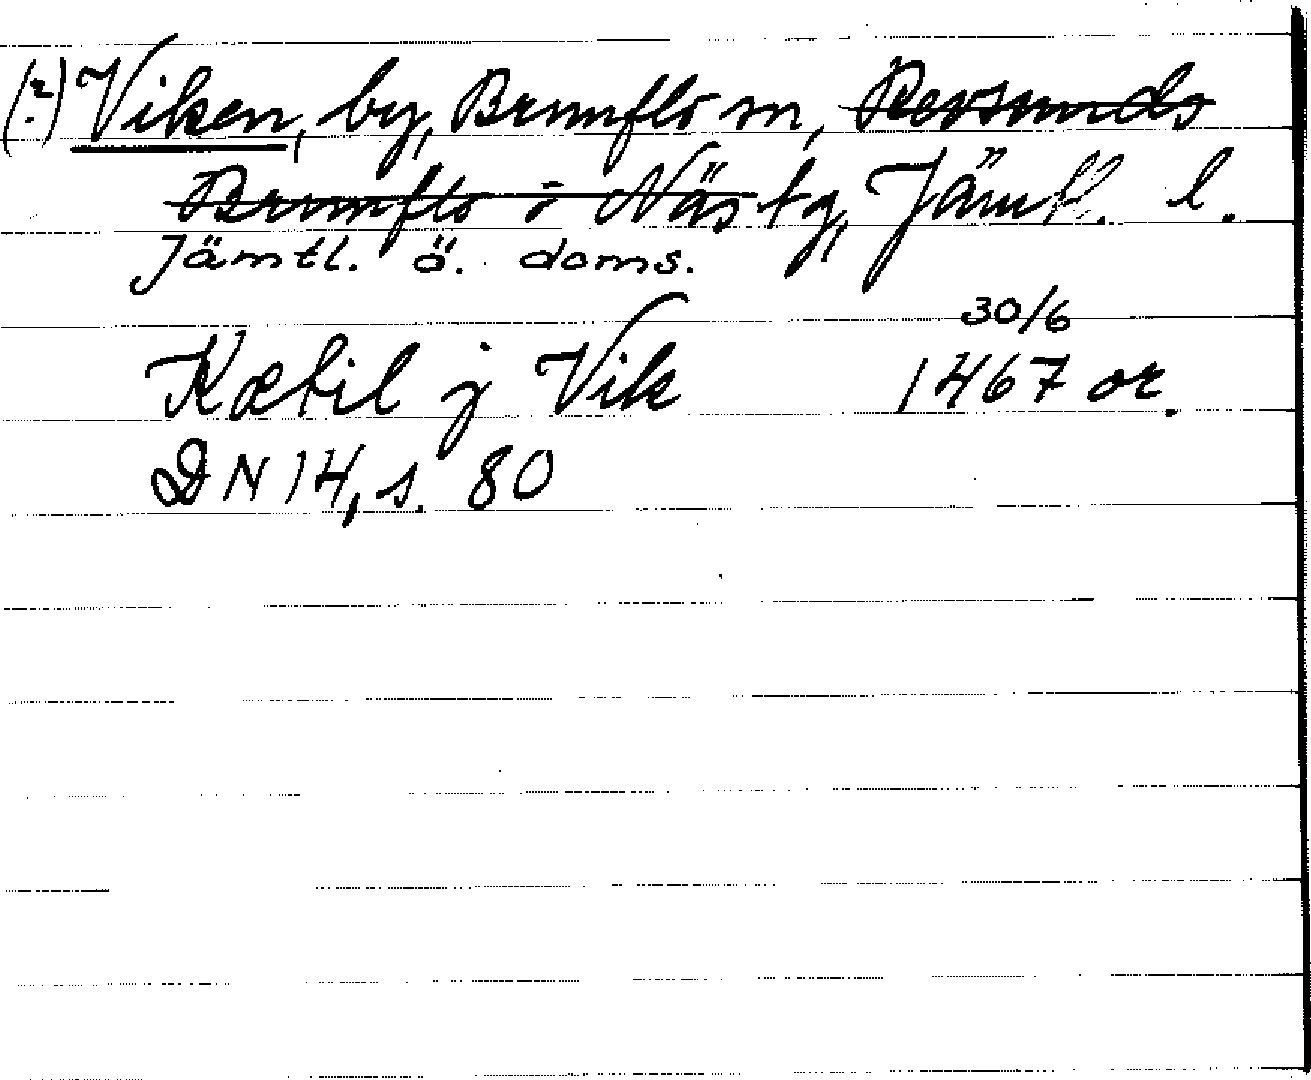 (?) Viken, by, Brunflo sn, Revsunds
Brunflo o Näs tg, Jämtl. l.
Jämtl. ö. doms.
30/6
Kætil j Vik 1467 or.
DN 14, s. 80